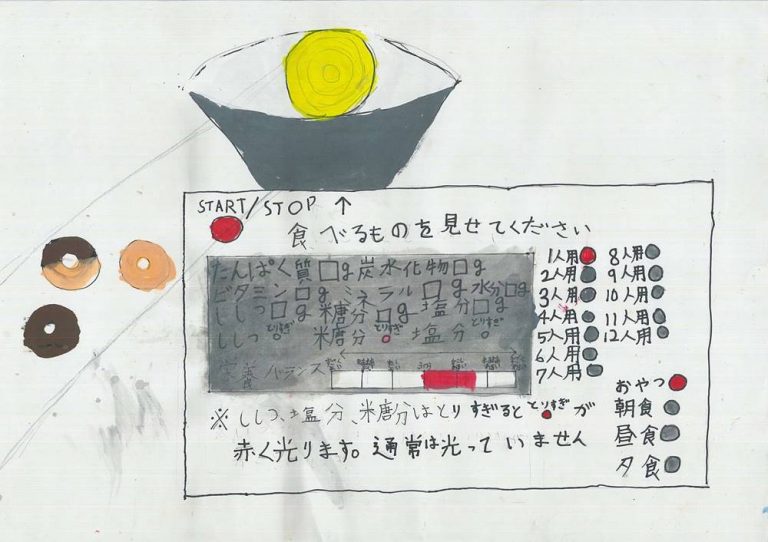 START/STOP ↑
食べるものを見せてください
たんぱく質□g 炭水化物□g
ビタミン□g ミネラル□g 水分□g
ししつ□g 糖分□g 塩分□g
とりすぎ とりすぎ とりすぎ
ししつ 糖分 塩分
バランス
※ししつ、塩分、糖分はとりすぎるととりすぎが
赤く光ります。通常は光っていません
1人用 8人用
2人用 9人用
3人用 10人用
4人用 11人用
5人用 12人用
6人用
7人用
おやつ
朝食
昼食
夕食